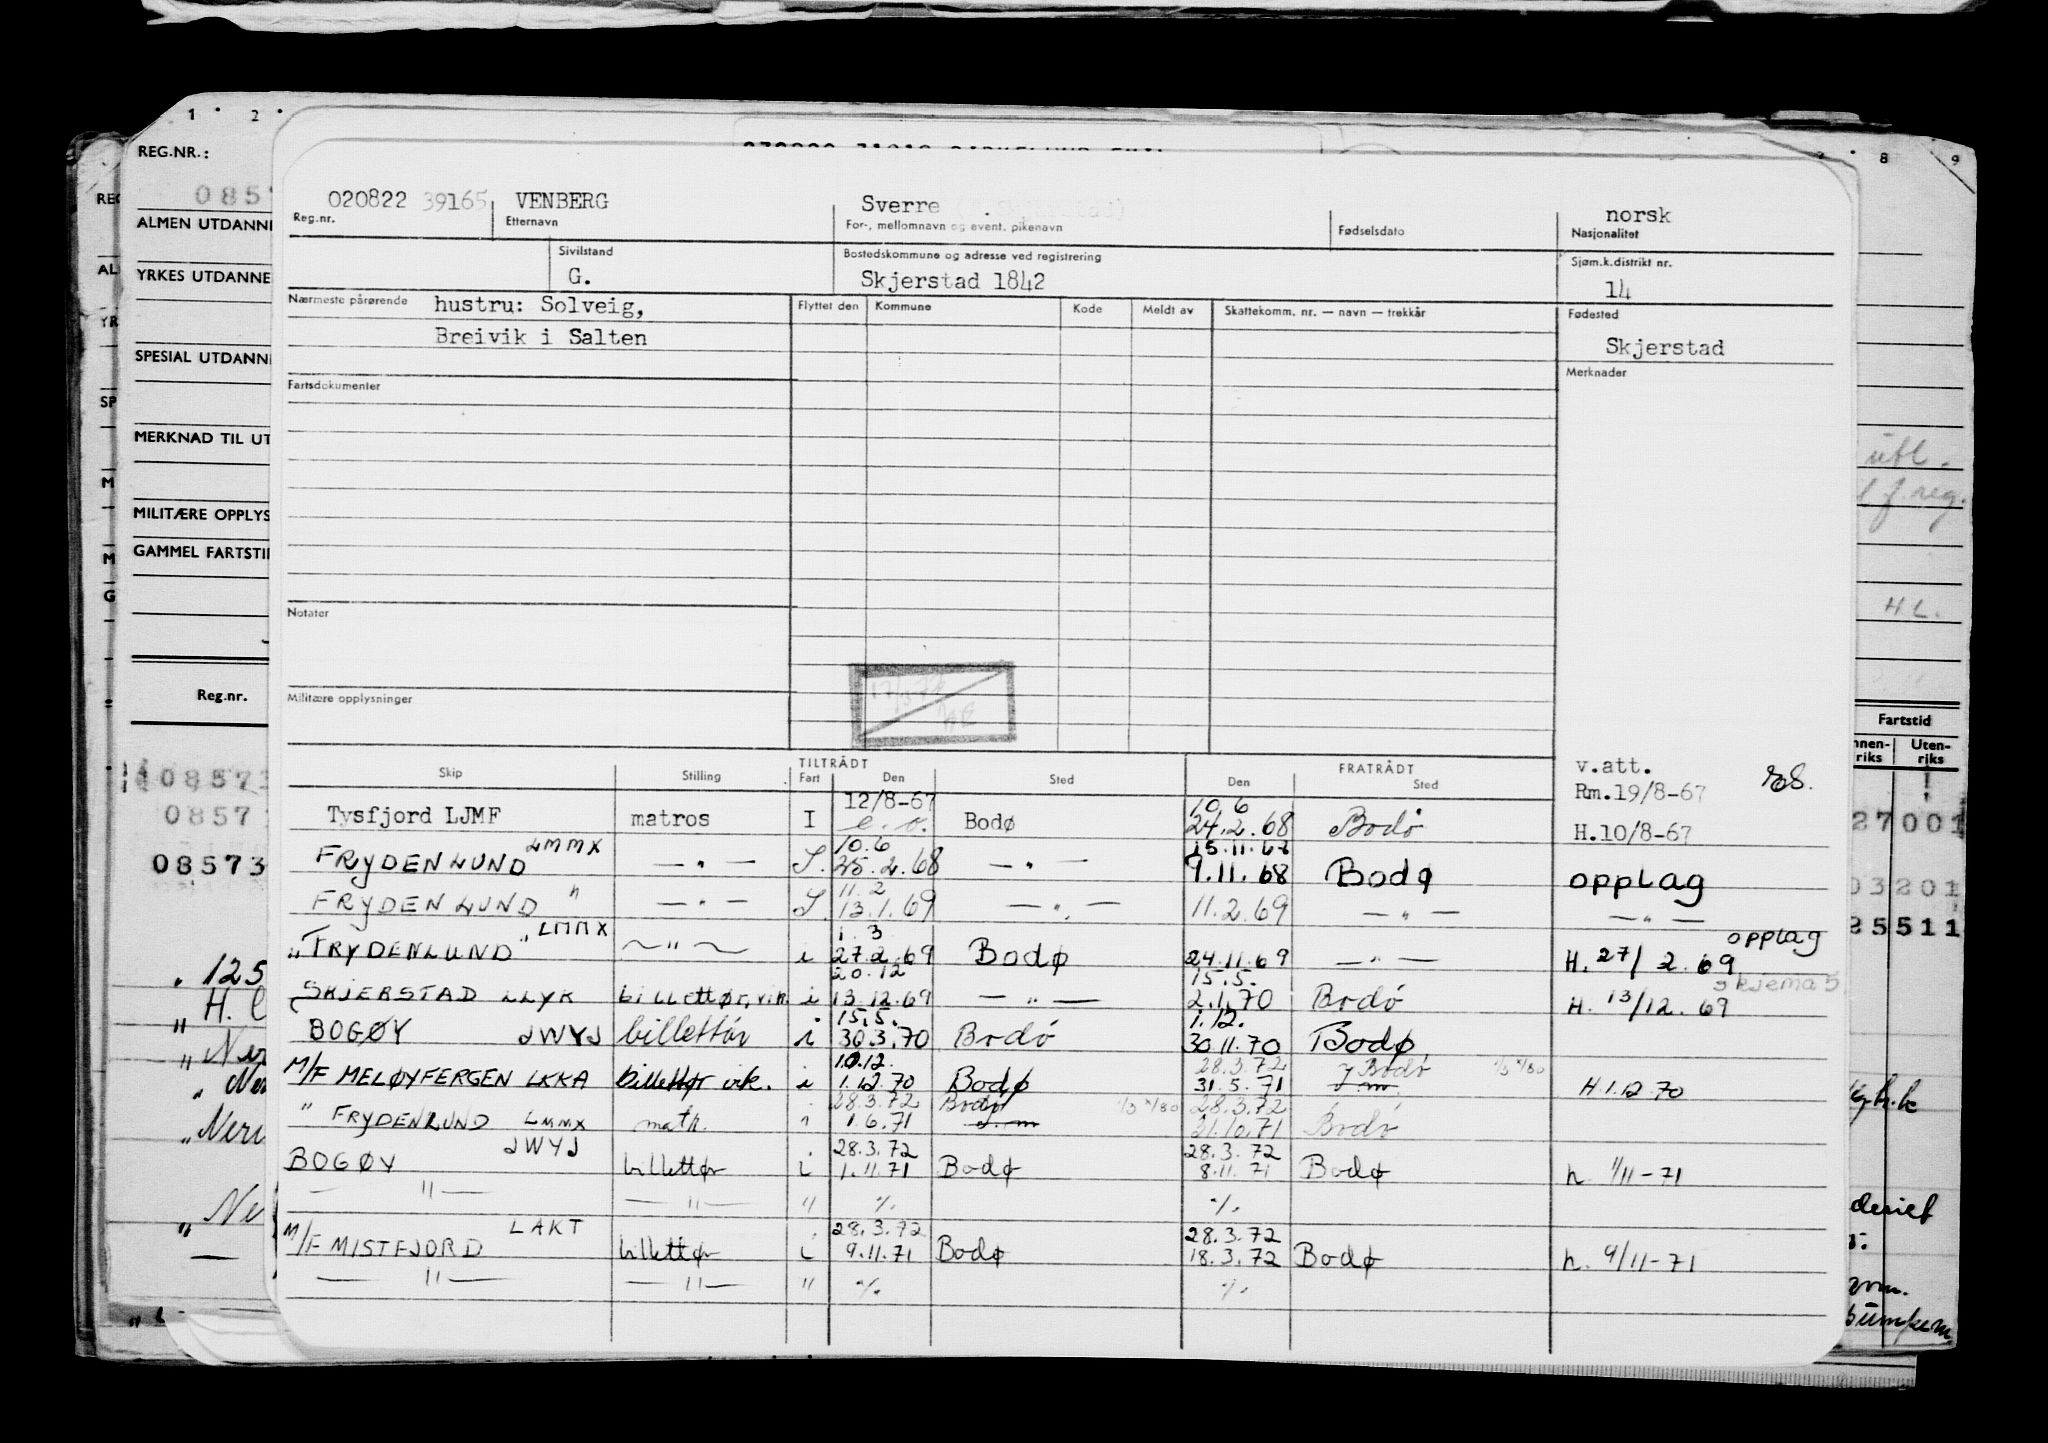 1 2 8 9
REG.NR.:
ALMEN UTDANNE
YRKES UTDANNE
SPESIAL UTDANN
MERKNAD TIL UT
MILITÆRE OPPLYS
GAMMEL FARTSTI
Reg.nr.
08573
020822 39165 VENBERG Sverre norsk
Reg.nr. Etternavn For-, mellomnavn og event. pikenavn Fødselsdato Nasjonalitet
Sivilstand Bostedskommune og adresse ved registrering Sjøm.k.distrikt nr.
G. Skjerstad 1842 14
Nærmeste pårørende hustru: Solveig, Flyttet den Kommune Kode Meldt av Skattekomm. nr. — navn — trekkår Fødested
Breivik i Salten Skjerstad
Fartsdokumenter Merknader
Notater
Militære opplysninger
TILTRÅDT FRATRÅDT v.att.
Skip Stilling Fart Den Sted Den Sted Rm.19/8-67
12/8-67 10.6
Tysfjord LJMF matros I e.o. Bodø 24.2.68 Bodø H.10/8-67
LMMX 10.6 15.11.68
FRYDENLUND — " — S. 25.2.68 — " — 9.11.68 Bodø opplag
" 11.2
FRYDENLUND — " — S. 13.1.69 — " — 11.2.69 — " — — " —
LMMX 1.3 opplag
" FRYDENLUND " — " — i 27.2.69 Bodø 24.11.69 — " — H. 27/2.69
20.12 15.5. skjema 5
SKJERSTAD LLYK billettør, vik. i 13.12.69 — " — 2.1.70 Bodø H. 13/12.69
15.5. 1.12.
BOGØY JWYJ billettør i 30.3.70 Bodø 30.11.70 Bodø
10.12. 28.3.72 Bodø
M/F MELØYFERGEN LKKA billettør vik. i 1.12.70 Bodø 31.5.71 H.1.12.70
28.3.72 Bodø 28.3.72
" FRYDENLUND LMMX matr. i 1.6.71 31.10.71 Bodø
JWYJ 28.3.72 28.3.72
BOGØY billettør i 1.11.71 Bodø 8.11.71 Bodø h. 1/11-71
— " — — " — " %. %.
LAKT 28.3.72 28.3.72
M/F MISTFJORD billettør i 9.11.71 Bodø 18.3.72 Bodø h. 9/11-71
— " — — " — " %. %.
utl.
f.reg.
H.L.
Fartstid
Uten-
riks
27001
03201
25511